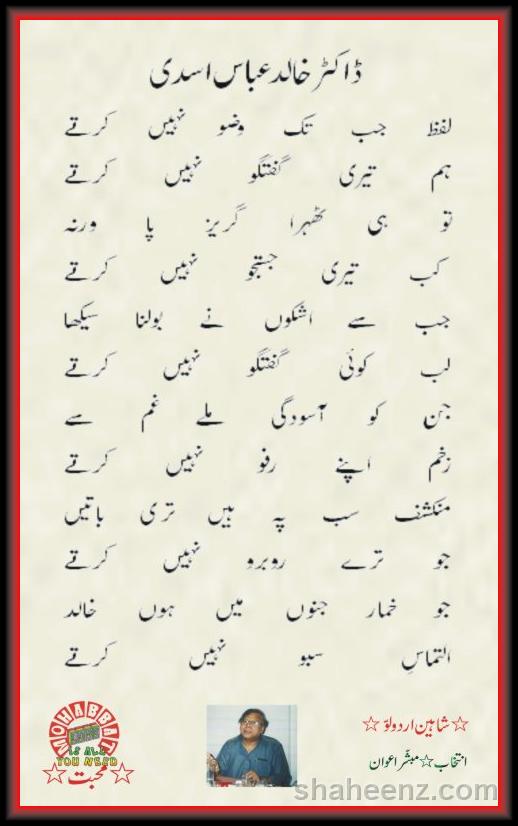 ڈاکٹر خالد عباس اسدی
لفظ جب تک وضو نہیں کرتے
ہم تیری گفتگو نہیں کرتے
تو ہی ٹھہرا گریز پا ورنہ
کب تیری جستجو نہیں کرتے
جب سے اشکوں نے بولنا سیکھا
لب کوئی گفتگو نہیں کرتے
جن کو آسودگی ملے غم سے
زخم اپنے رفو نہیں کرتے
منکشف سب پہ ہیں تری باتیں
جو ترے روبرو نہیں کرتے
جو خمار جنوں میں ہوں خالد
التماسِ سبو نہیں کرتے
☆شاہین اردو لوّ☆
انتخاب☆مبشّر اعوان
MOHABBAT
IS ALL
YOU NEED
☆محبت☆
shaheenz.com